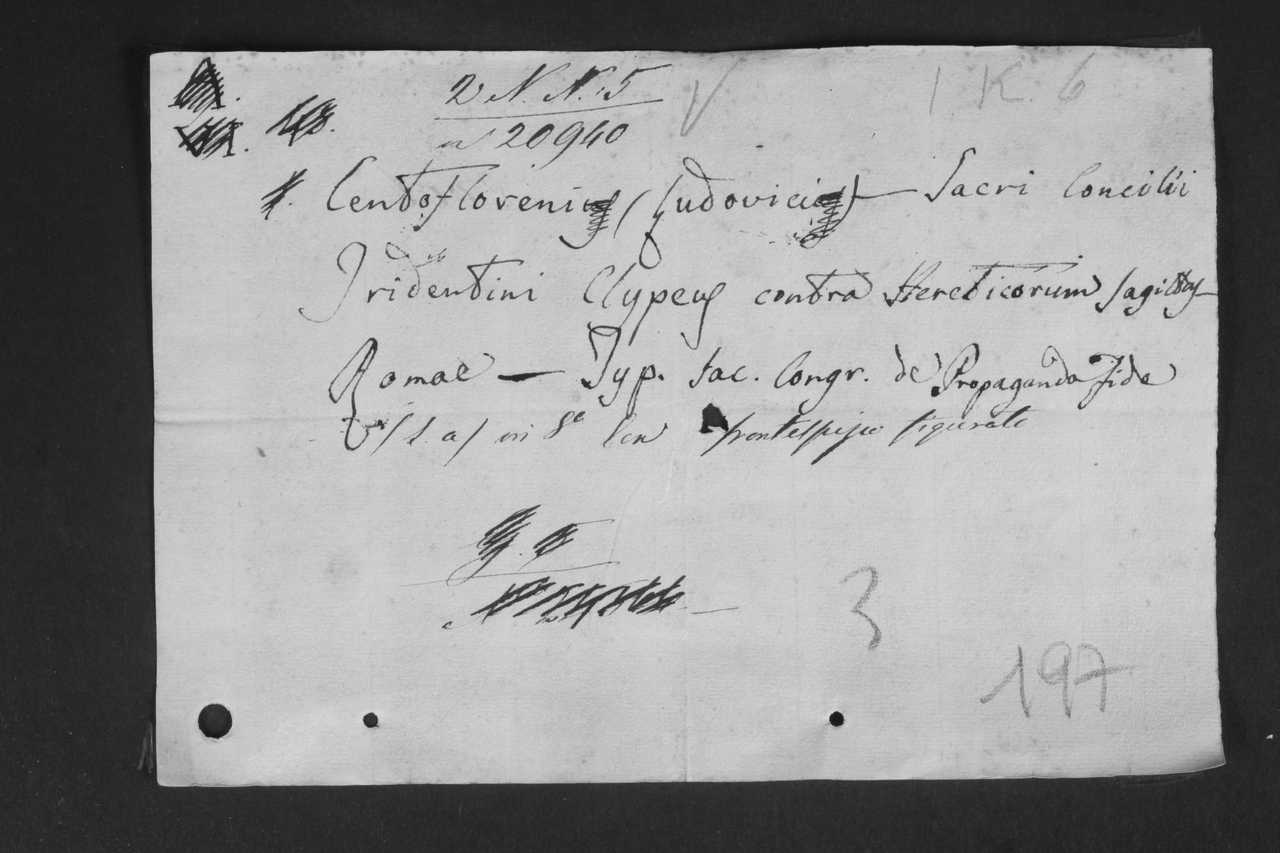 2 N. N. 5
20940
V
1 K. 6
Centoflореni (Ludovici) — Sacri Concilii
Tridentini Clypeus contra Hereticorum sagittas
Romae — Typ. Sac. Congr. de Propaganda Fide
(s. a) in 8° Con frontespizio figurato
3
197